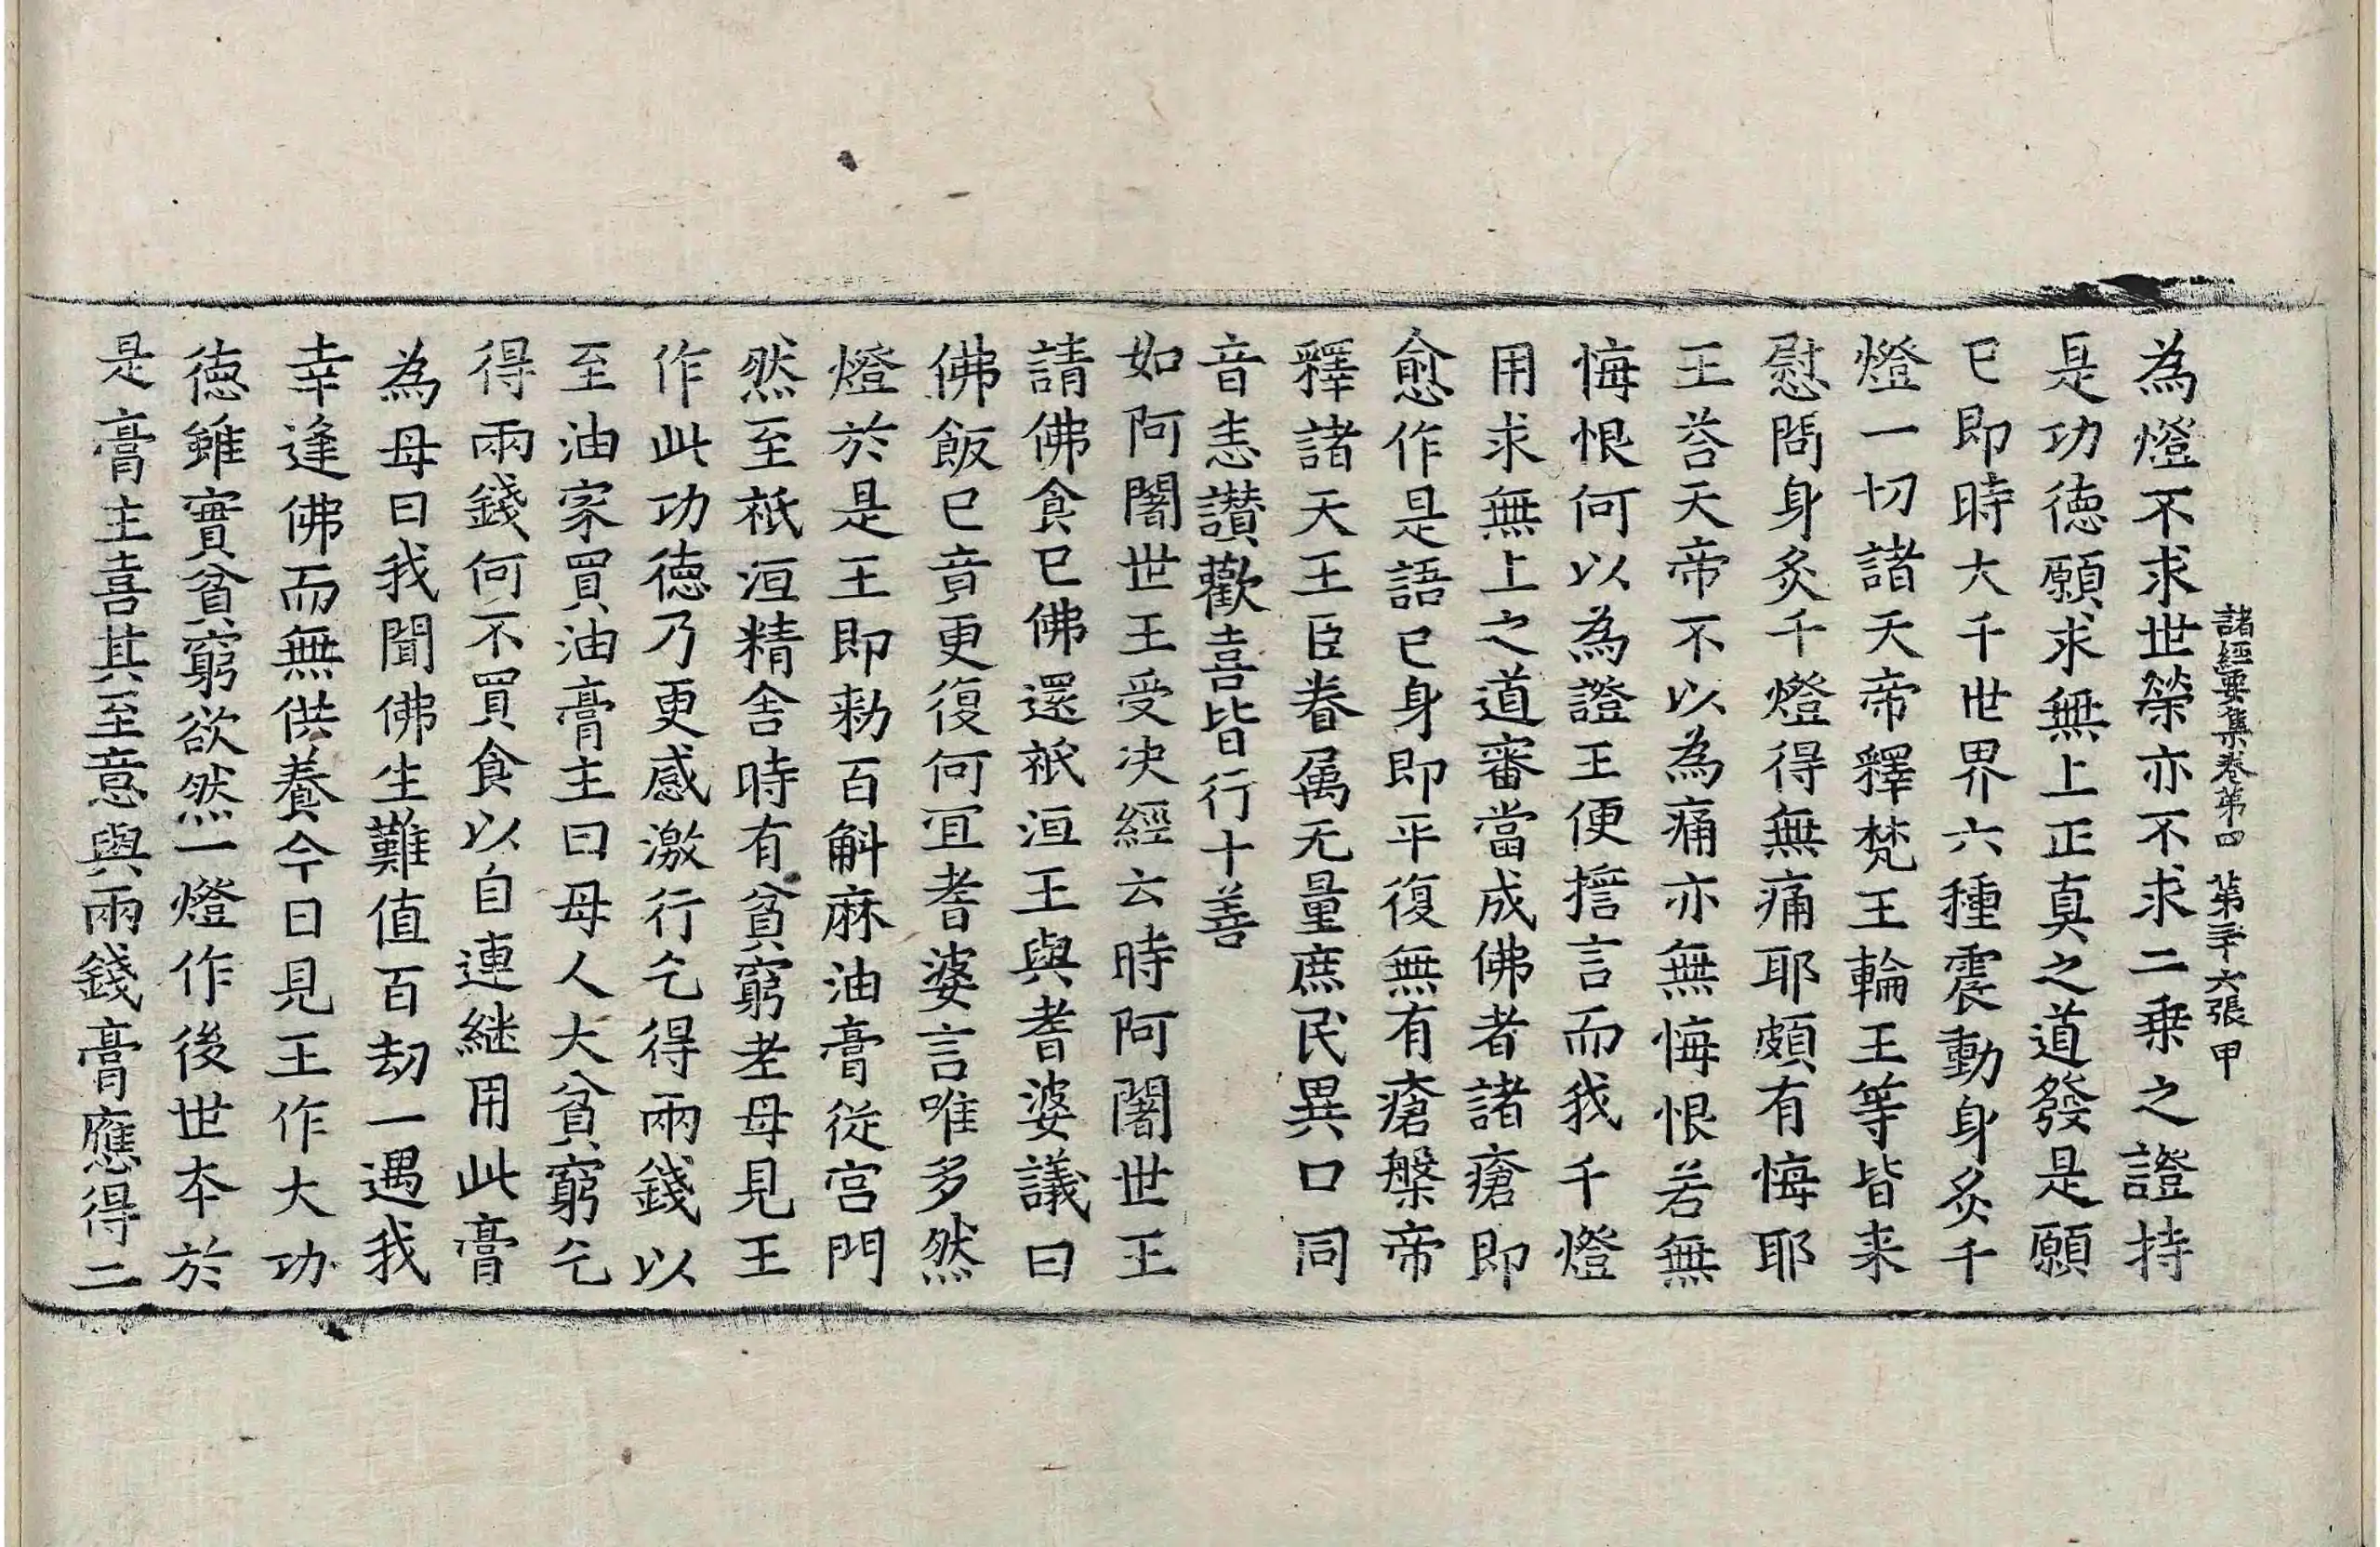 諸經要集卷第四 第三十六張 甲
為燈不求世榮亦不求二乗之證持
是功徳願求無上正真之道發是願
已即時大千世界六種震動身炙千
燈一切諸天帝釋梵王輪王等皆来
慰問身炙千燈得無痛耶頗有悔耶
王荅天帝不以為痛亦無悔恨若無
悔恨何以為證王便誓言而我千燈
用求無上之道審當成佛者諸瘡即
愈作是語已身即平復無有瘡槃帝
釋諸天王臣眷属无量庶民異口同
音恚讃歡喜皆行十善
如阿闍世王受决經云時阿闍世王
請佛食已佛還祇洹王與耆婆議曰
佛飯已竟更復何冝耆婆言唯多然
燈於是王即勑百斛麻油膏從宫門
然至祇洹精舎時有貧窮老母見王
作此功徳乃更感激行乞得兩錢以
至油家買油膏主曰母人大貧窮乞
得兩錢何不買食以自連継用此膏
為母曰我聞佛生難值百劫一遇我
幸逢佛而無供養今日見王作大功
徳雖實貧窮欲然一燈作後世本於
是膏主喜其至意與兩錢膏應得二